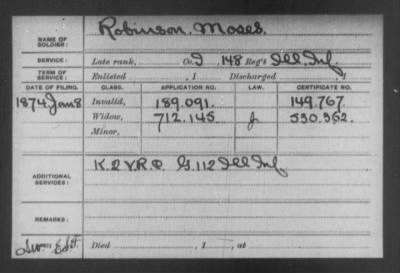 NAME OF SOLDIER: Robinson, Moses.
SERVICE: Late rank, Co. I, 148 Reg't Ill. Inf.
TERM OF SERVICE: Enlisted , 1 Discharged , 1
DATE OF FILING. CLASS. APPLICATION NO. LAW. CERTIFICATE NO.
1874 Jan 8 Invalid, 189.091. 149.767.
Widow, 712.145 530.362.
Minor,
ADDITIONAL SERVICES: K. 2 V.R.C. G. 112 Ill Inf
REMARKS:
Died , 1 , at